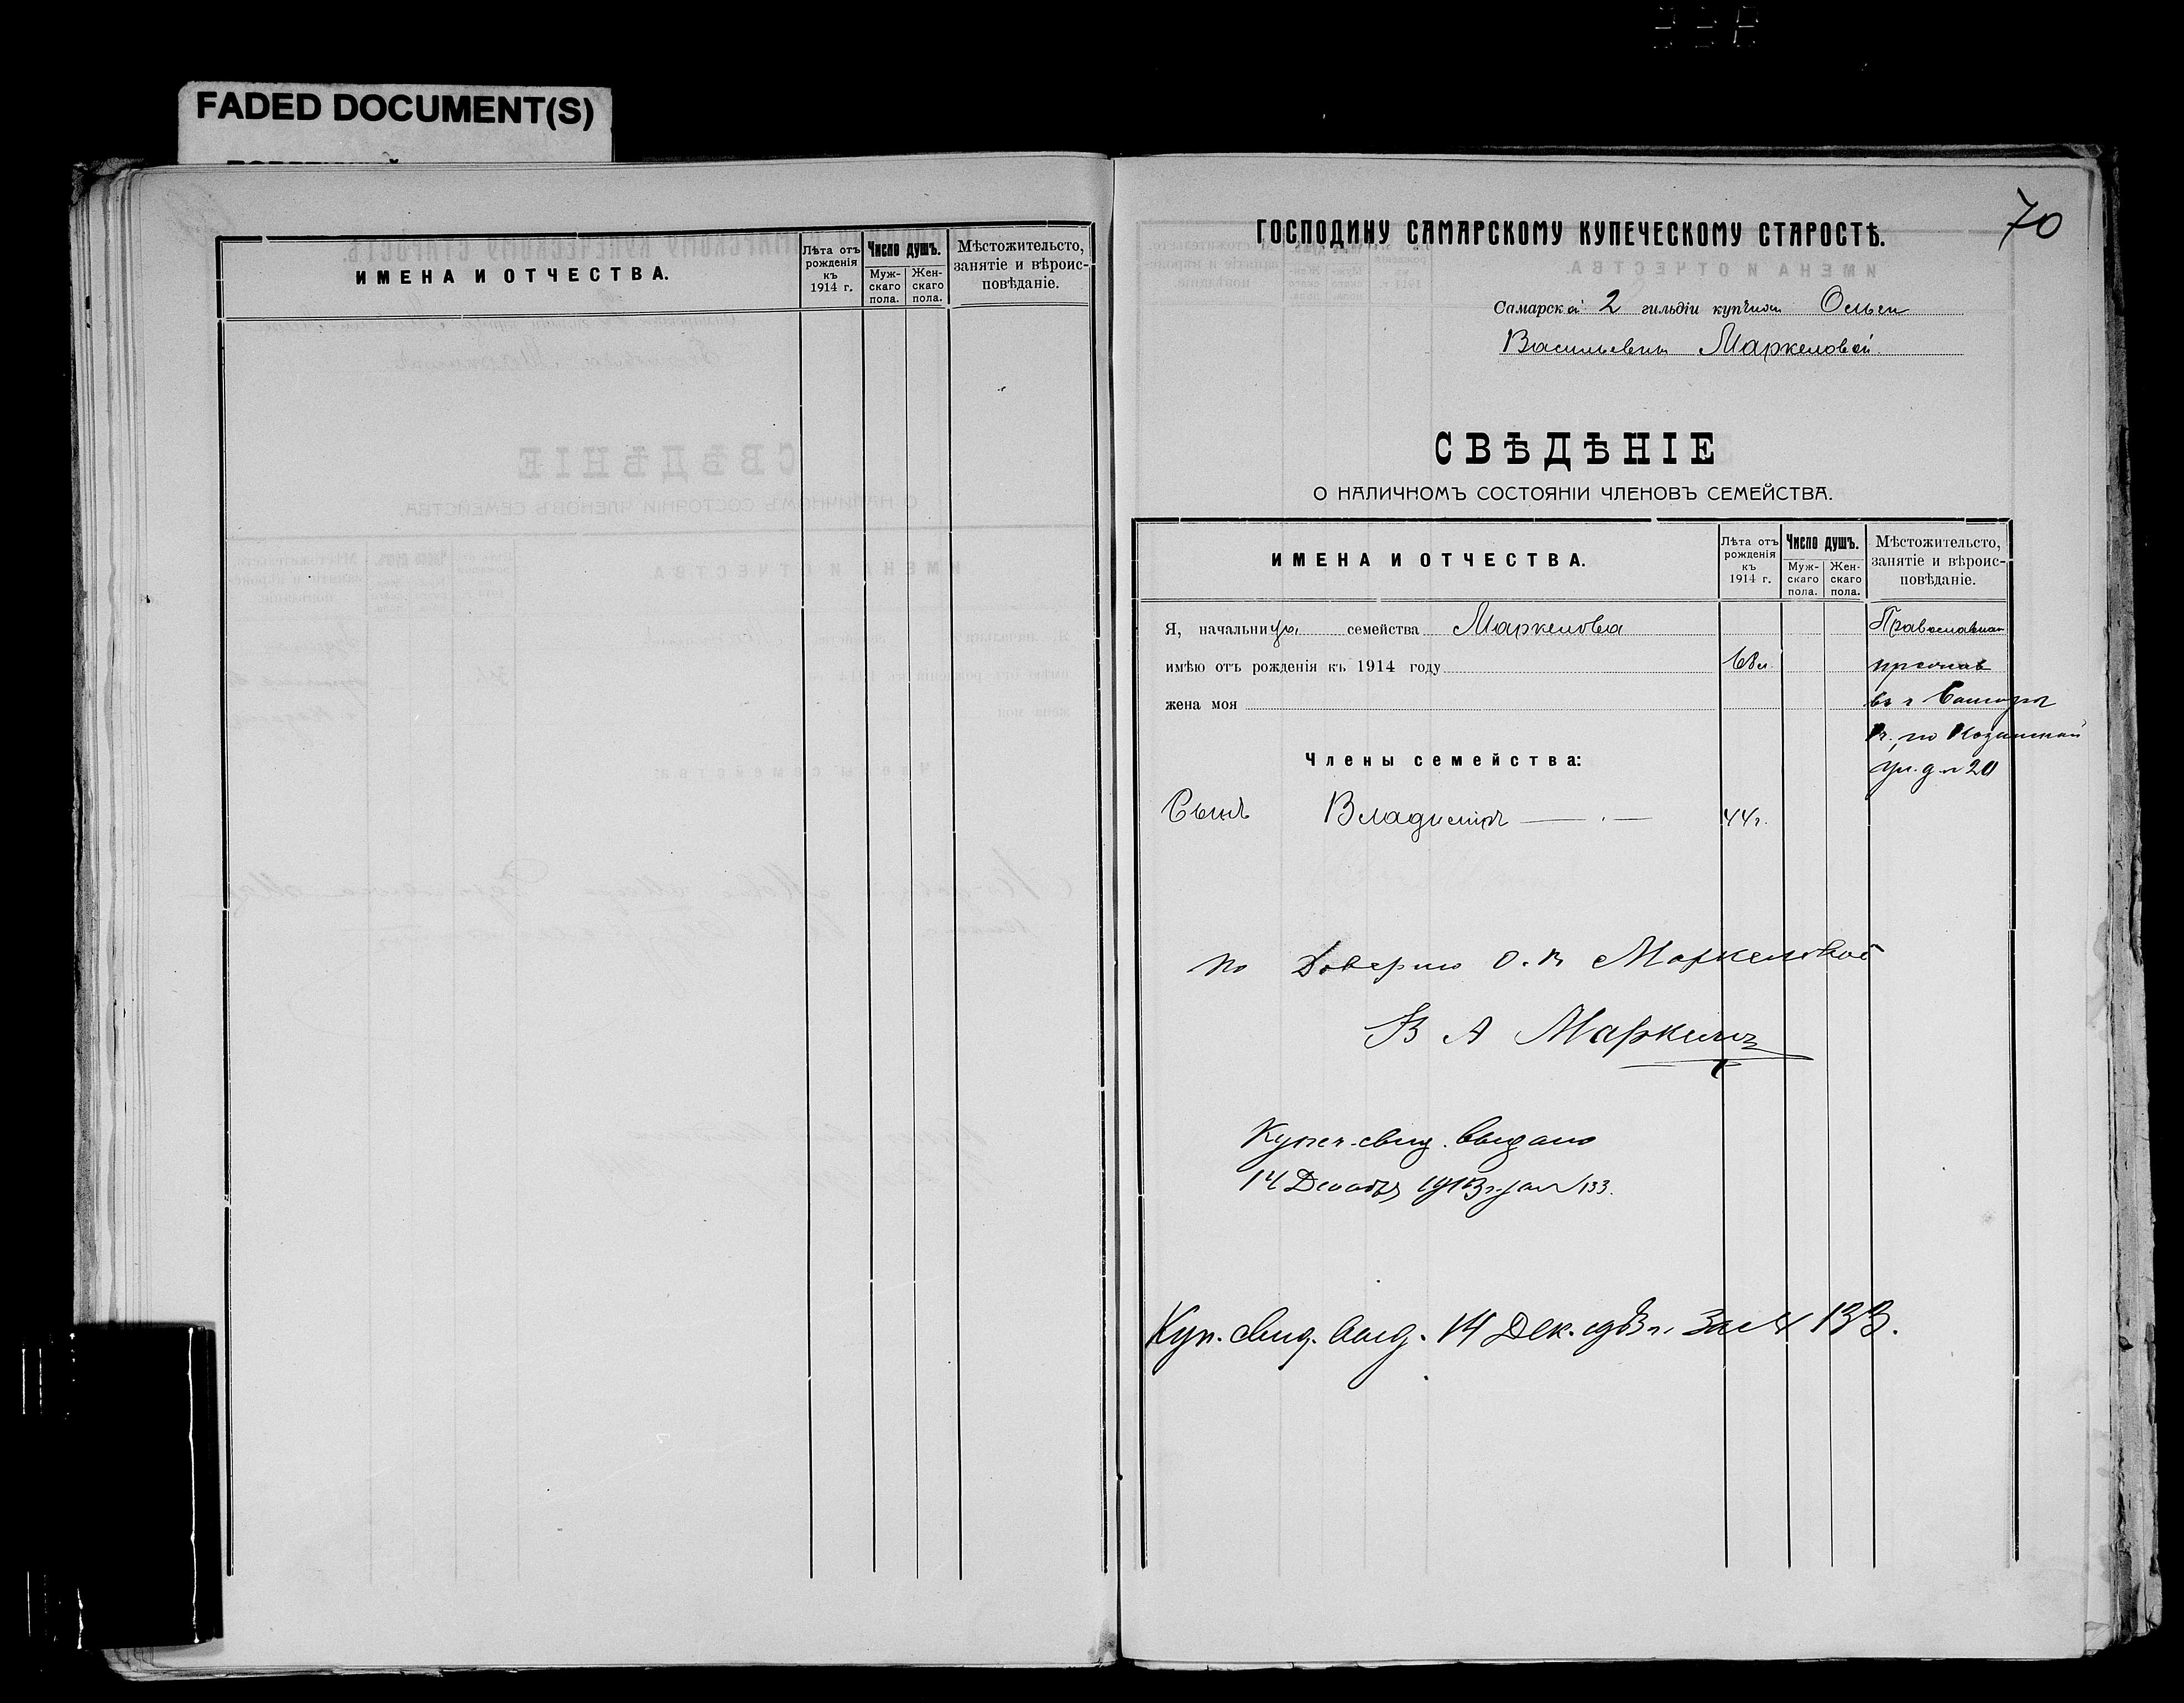 FADED DOCUMENT(S)
ИМЕНА И ОТЧЕСТВА.
Лѣта отъ рожденія къ 1914 г.
Число душъ.
Муж-скаго пола.
Жен-скаго пола.
Мѣстожительсто, занятіе и вѣроис-повѣданіе.
70
ГОСПОДИНУ САМАРСКОМУ КУПЕЧЕСКОМУ СТАРОСТѢ.
Самарской 2 гильдіи купчихи Ольги
Васильевны Маркеловой
СВѢДѢНІЕ
О НАЛИЧНОМЪ СОСТОЯНІИ ЧЛЕНОВЪ СЕМЕЙСТВА.
ИМЕНА И ОТЧЕСТВА.
Лѣта отъ рожденія къ 1914 г.
Число душъ.
Муж-скаго пола.
Жен-скаго пола.
Мѣстожительсто, занятіе и вѣроис-повѣданіе.
Я, начальница семейства Маркелова Православная
имѣю отъ рожденія къ 1914 году
жена моя въ г Самарѣ
по Казанской
Члены семейства:
ул. д № 20
Сынъ Владиміръ 44 г.
по Доверию О. В Маркеловой
В А Маркелов
Купеч. свид. выдано
14 Декабря 1913 г. за № 133.
Куп. свид. выд. 14 Дек. 1913 г. за № 133.